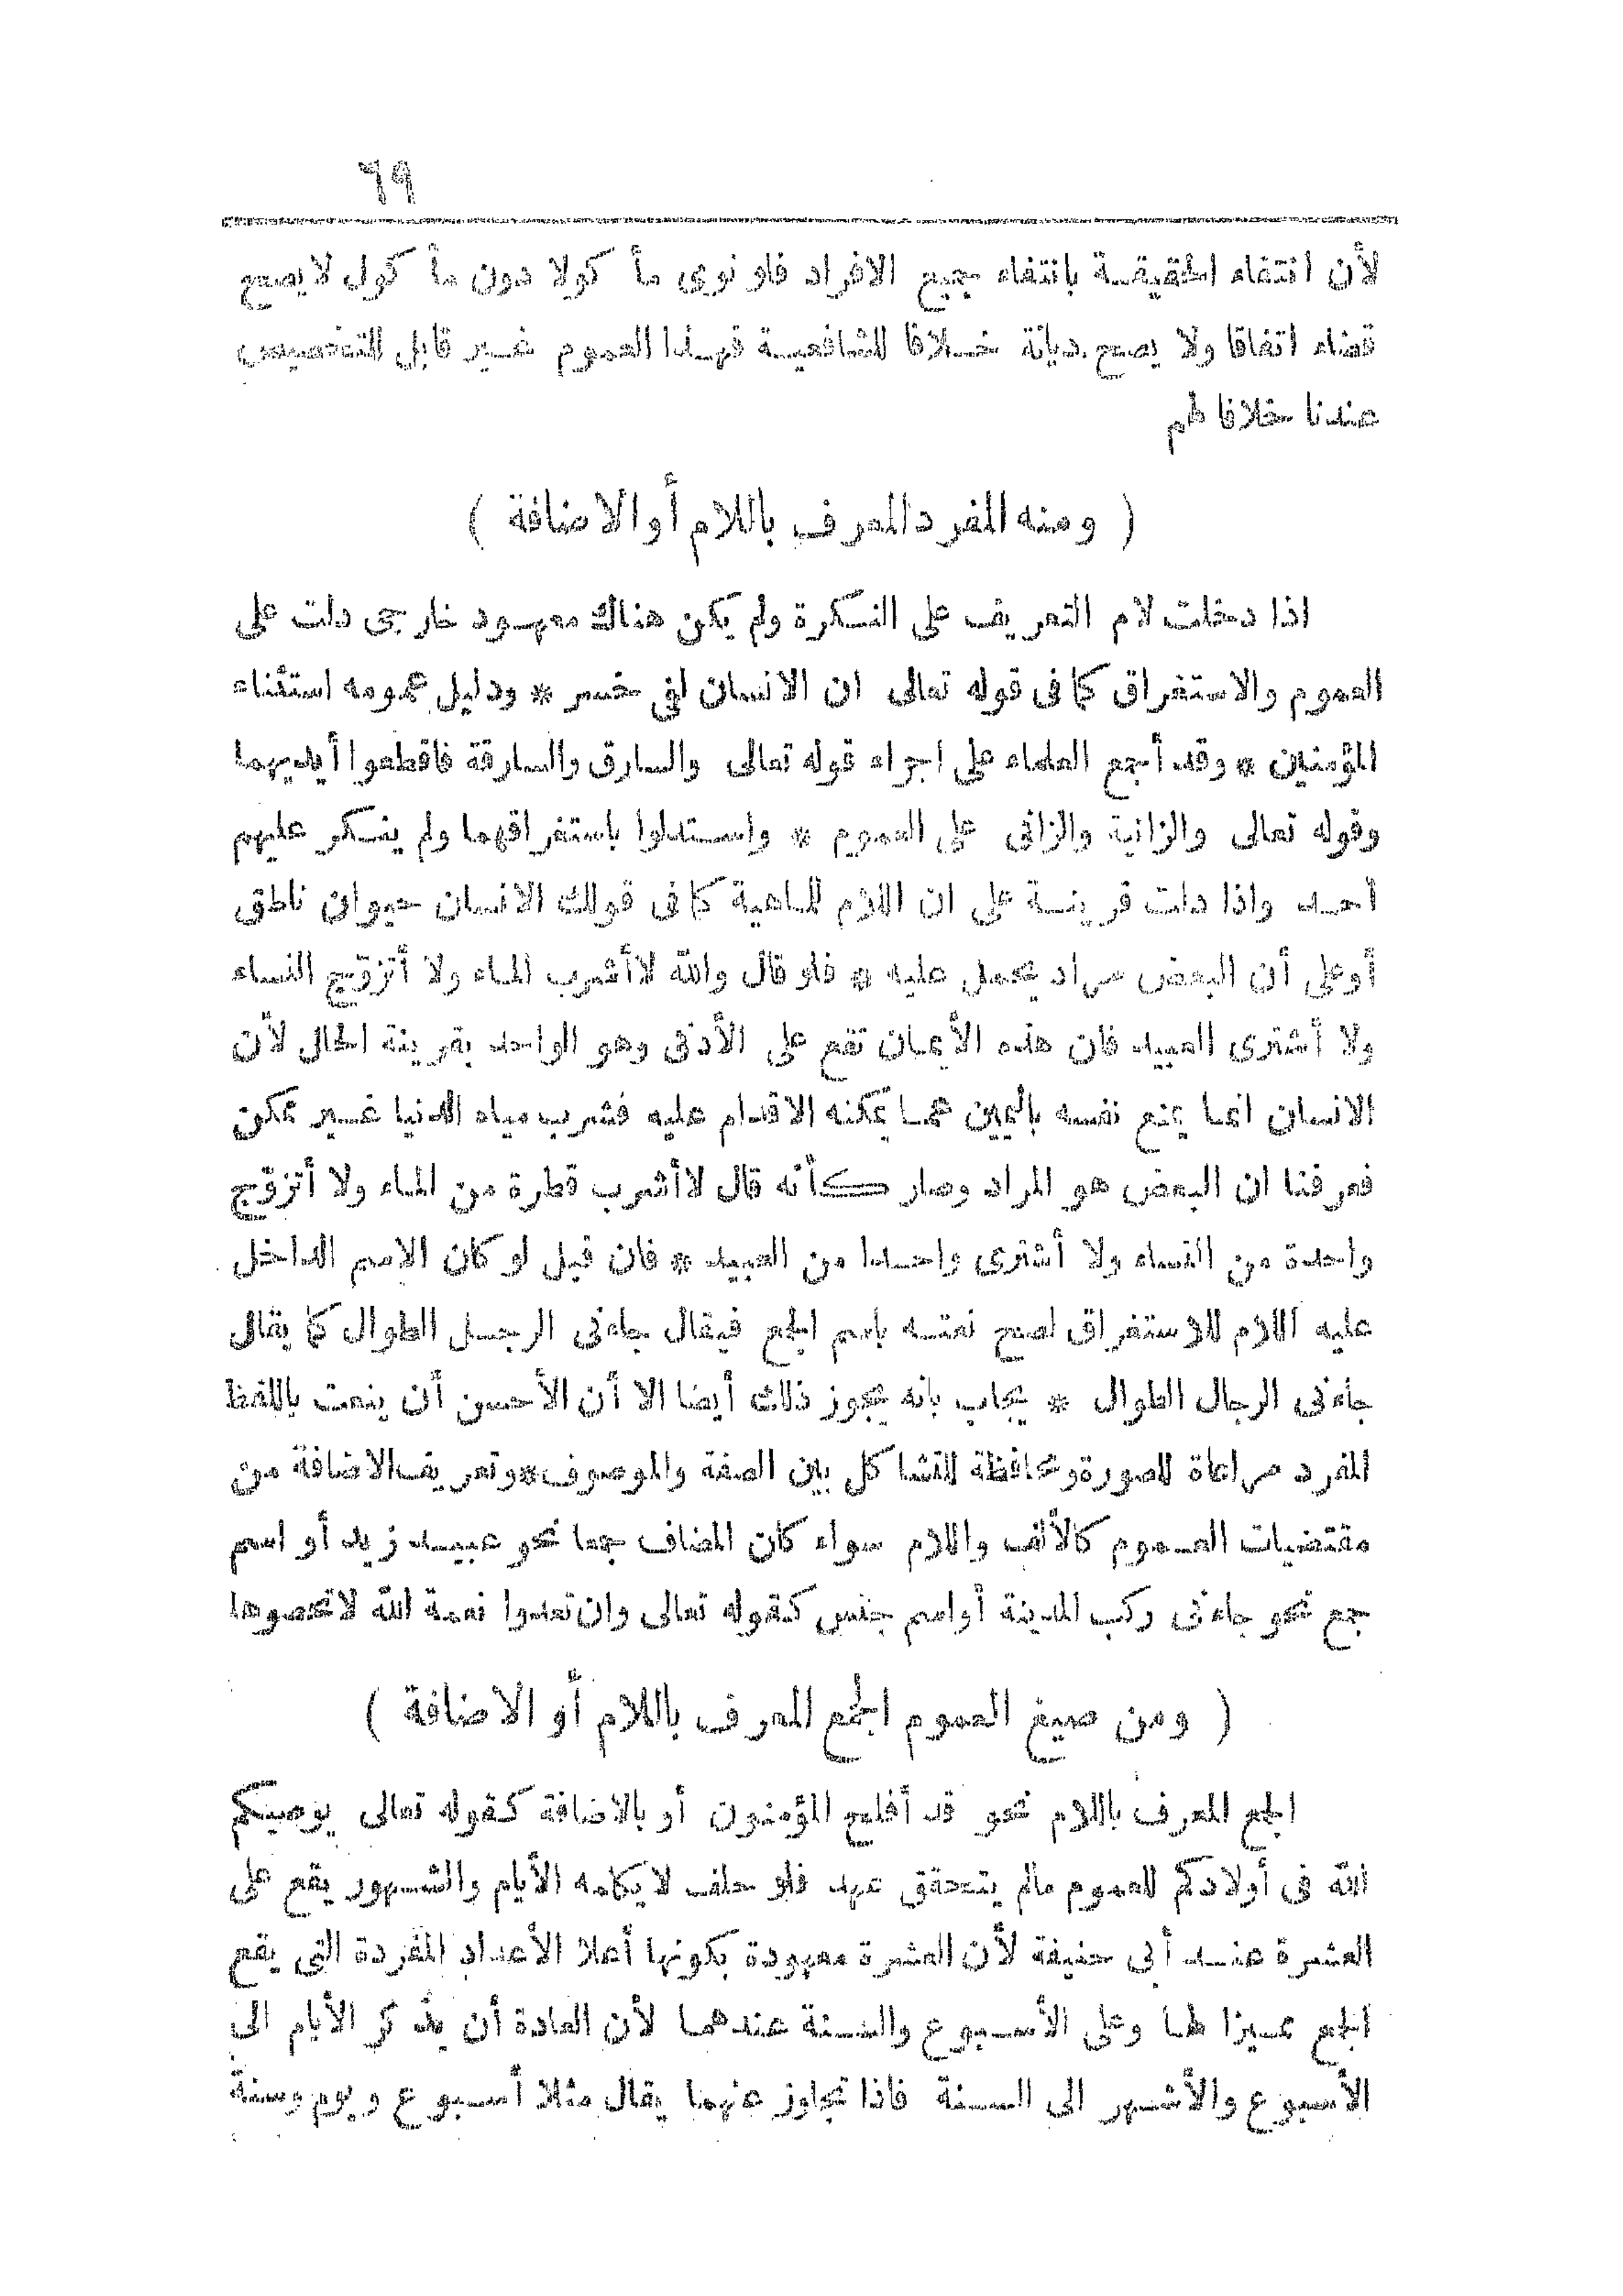 ٦٩
لأن انتفاء الحقيقة بانتفاء جميع الافراد فلو نوى مأ كولا دون مأ كول لا يصح
قضاء اتفاقا ولا يصح ديانة خلافا للشافعية فهذا العموم غير قابل للتخصيص
عندنا خلافا لهم
( ومنه المفرد المعرف باللام أو الاضافة )
اذا دخلت لام التعريف على النكرة ولم يكن هناك معهود خارجى دلت على
العموم والاستغراق كما فى قوله تعالى ان الانسان لفى خسر * ودليل عمومه استثناء
المؤمنين * وقد أجمع العلماء على اجراء قوله تعالى والسارق والسارقة فاقطعوا أيديهما
وقوله تعالى والزانية والزانى على العموم * واستدلوا باستغراقهما ولم ينكر عليهم
أحد واذا دلت قرينة على ان اللام للماهية كما فى قولك الانسان حيوان ناطق
أو على أن البعض مراد يحمل عليه * فلو قال والله لا أشرب الماء ولا أتزوّج النساء
ولا أشترى العبيد فان هذه الأيمان تقع على الأدنى وهو الواحد بقرينة الحال لأن
الانسان انما يمنع نفسه باليمين عما يمكنه الاقدام عليه فشرب مياه الدنيا غير ممكن
فعرفنا ان البعض هو المراد وصار كأنه قال لا أشرب قطرة من الماء ولا أتزوّج
واحدة من النساء ولا أشترى واحدا من العبيد * فان قيل لو كان الاسم الداخل
عليه اللام للاستغراق لصح نعته باسم الجمع فيقال جاءنى الرجل الطوال كما يقال
جاءنى الرجال الطوال * يجاب بانه يجوز ذلك أيضا الا أن الأحسن أن ينعت باللفظ
المفرد مراعاة للصورة ومحافظة للتشا كل بين الصفة والموصوف * وتعريف الاضافة من
مقتضيات العموم كالألف واللام سواء كان المضاف جمعا نحو عبيد زيد أو اسم
جمع نحو جاءنى ركب المدينة أو اسم جنس كقوله تعالى وان تعدوا نعمة الله لا تحصوها
( ومن صيغ العموم الجمع المعرف باللام أو الاضافة )
الجمع المعرف باللام نحو قد أفلح المؤمنون أو بالاضافة كقوله تعالى يوصيكم
الله فى أولادكم للعموم مالم يتحقق عهد فلو حلف لا يكلمه الأيام والشهور يقع على
العشرة عند أبى حنيفة لأن العشرة معهودة بكونها أعلا الأعداد المفردة التى يقع
الجمع مميزا لها وعلى الأسبوع والسنة عندهما لأن العادة أن يذ كر الأيام الى
الأسبوع والأشهر الى السنة فاذا تجاوز عنهما يقال مثلا أسبوع ويوم وسنة